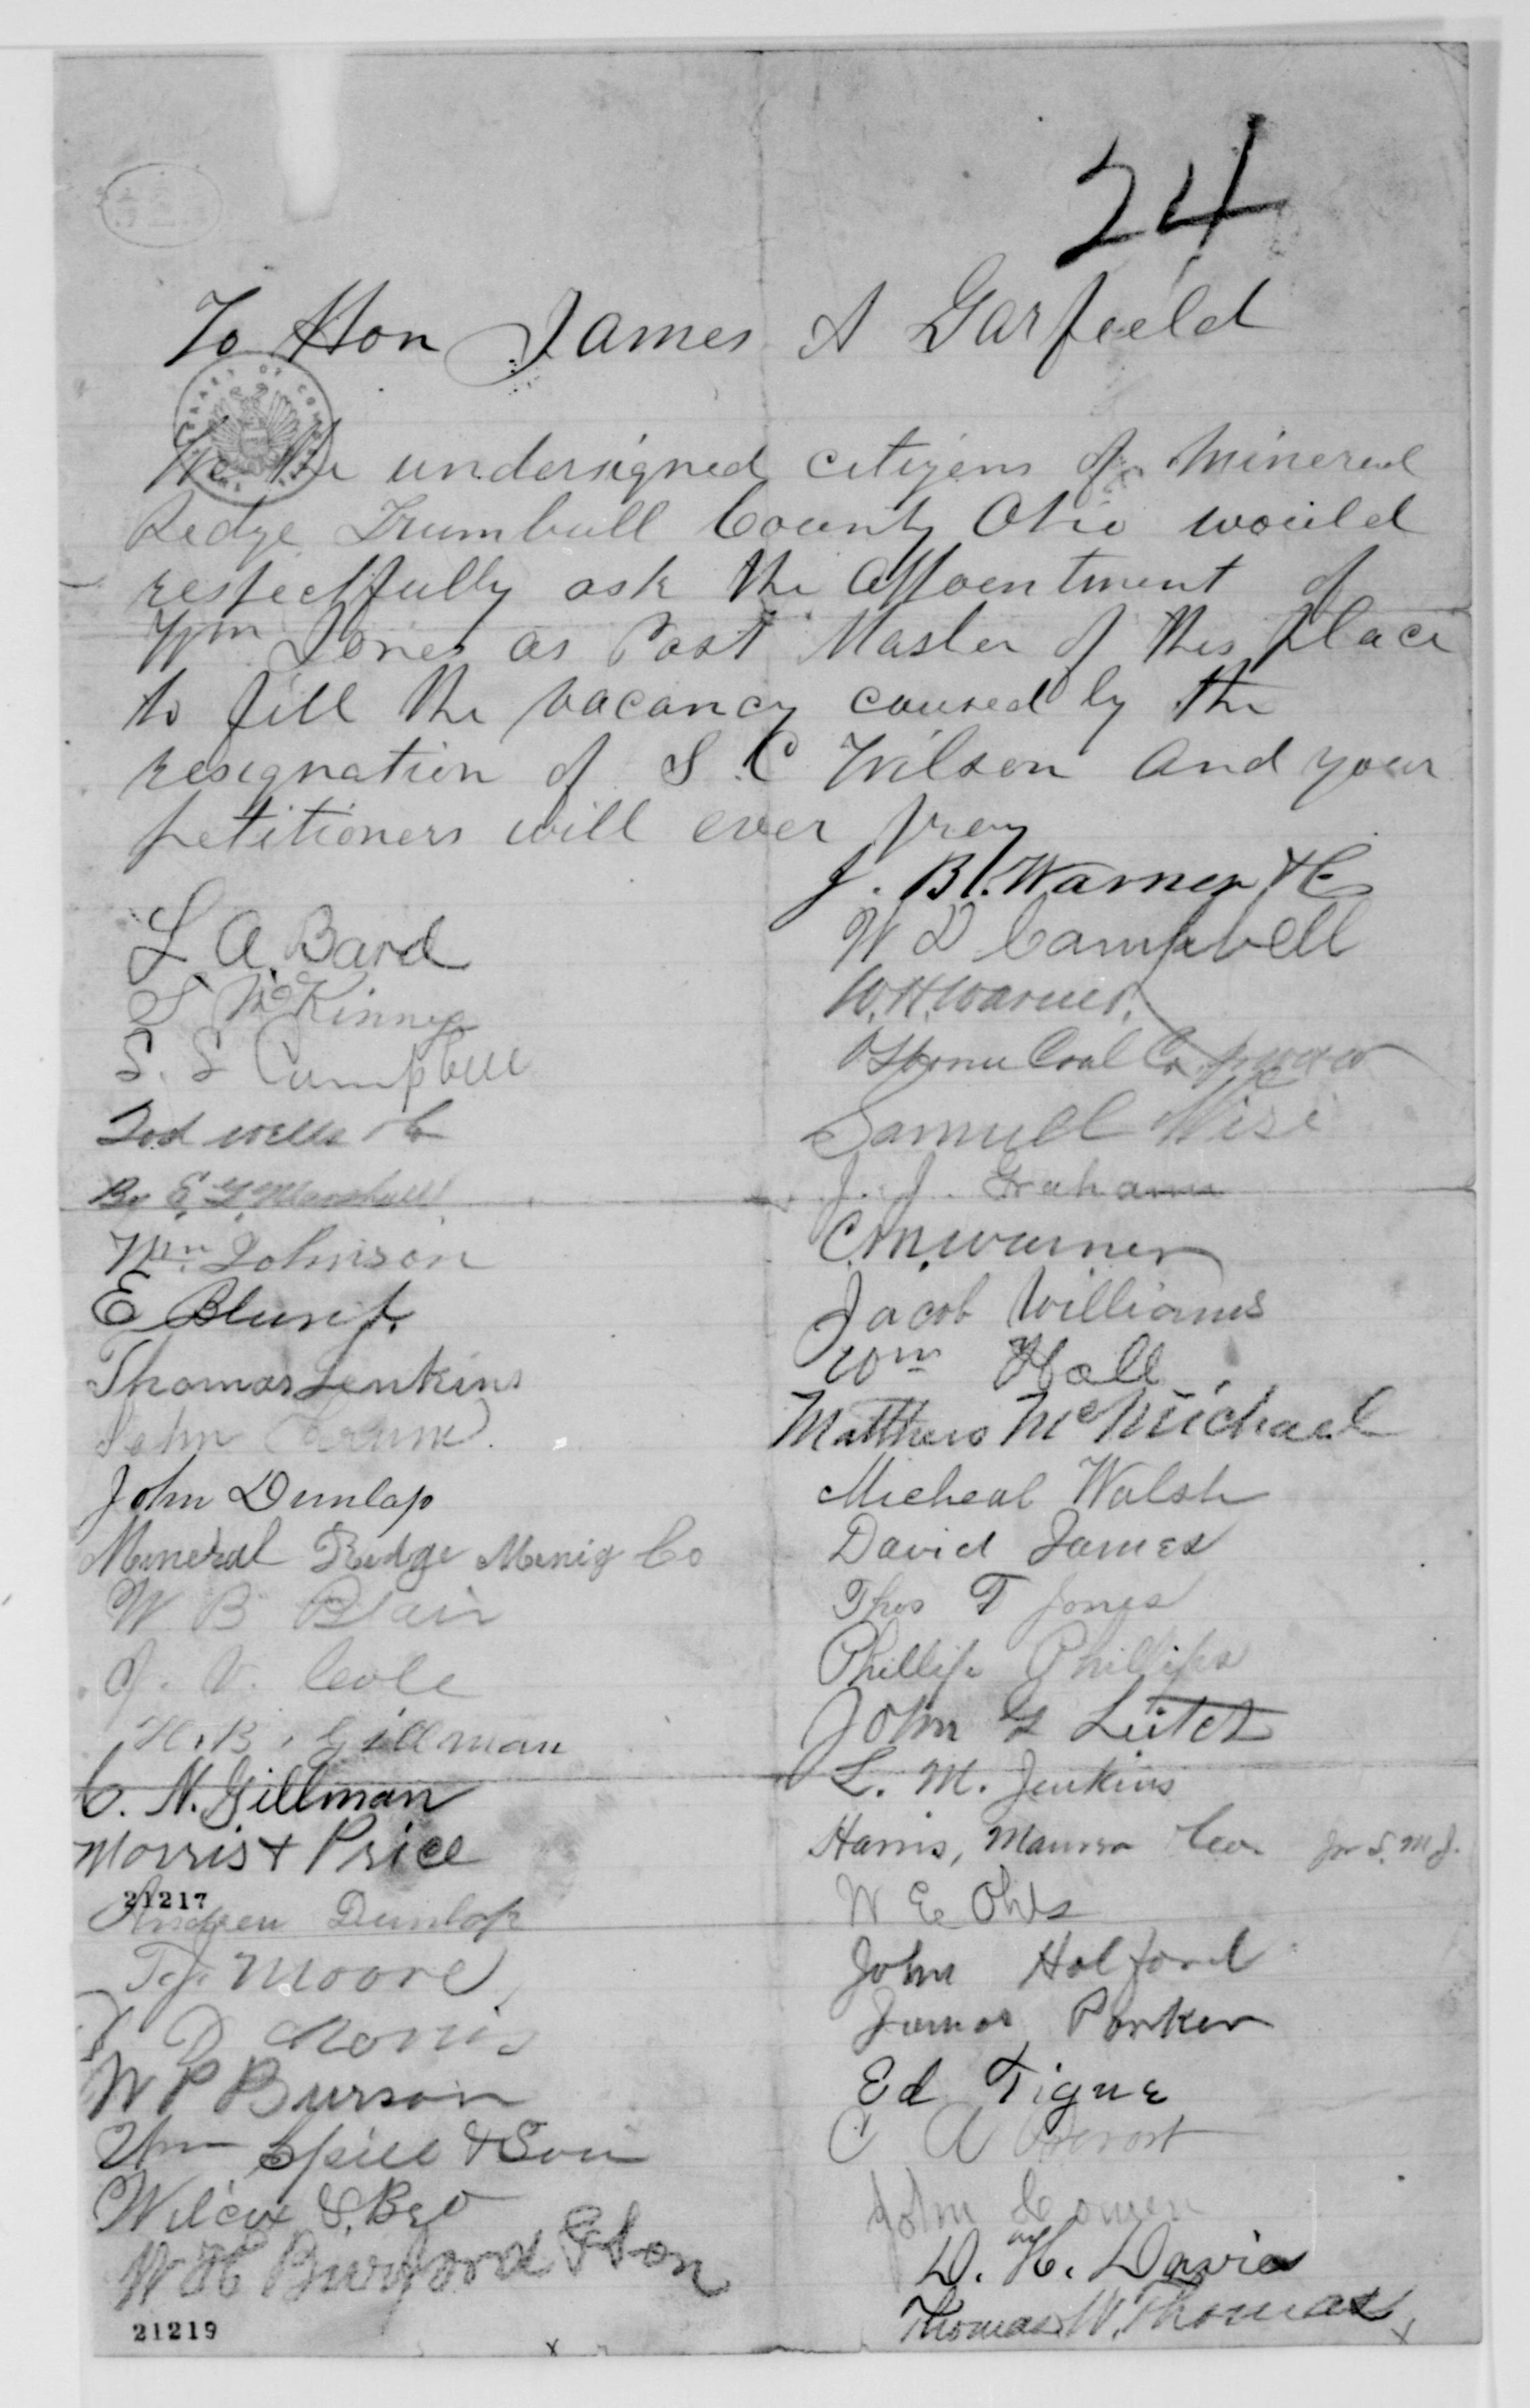 24
To Hon James A Garfield
We the undersigned citizens of Mineral
Ridge Trumbull County Ohio would
respectfully ask the appointment of
Wm Jones as Post Master of this place
to fill the vacancy caused by the
resignation of S C Wilson and your
petitioners will ever pray
L A. Bard
S McKinney
S. S Campbell
Tod Wells & Co
By E. G. Marshall
Wm. Johnson
E Blunt.
Thomas Jenkins
John
John Dunlap
Mineral Ridge Minig Co
W B Blair
J. V. Cole
H. B. Gillman
C. N. Gillman
Morris & Price
21217
Andrew Dunlap
T J Moore
D Morris
W P Burson
Wm Spill & Son
Wilcox & Bro
W H Burford & Son
21219
J. B. Warner & Co
W D Campbell
W. H. Warner.
Osborne Coal Co
Samuel Wise
J. J. Graham
C. M. Warner
Jacob Williams
Wm Hall
Matthew McMichael
Micheal Walsh
David James
Thos T Jones
Phillip Phillips
John G Leitch
L. M. Jenkins
Harris, Maurer & Co. pr S. M J.
W E Ohls
John Holford
James Parker
Ed Tigue
C A Prevost
John Cowen
D. H. Davies
Thomas W. Thomas